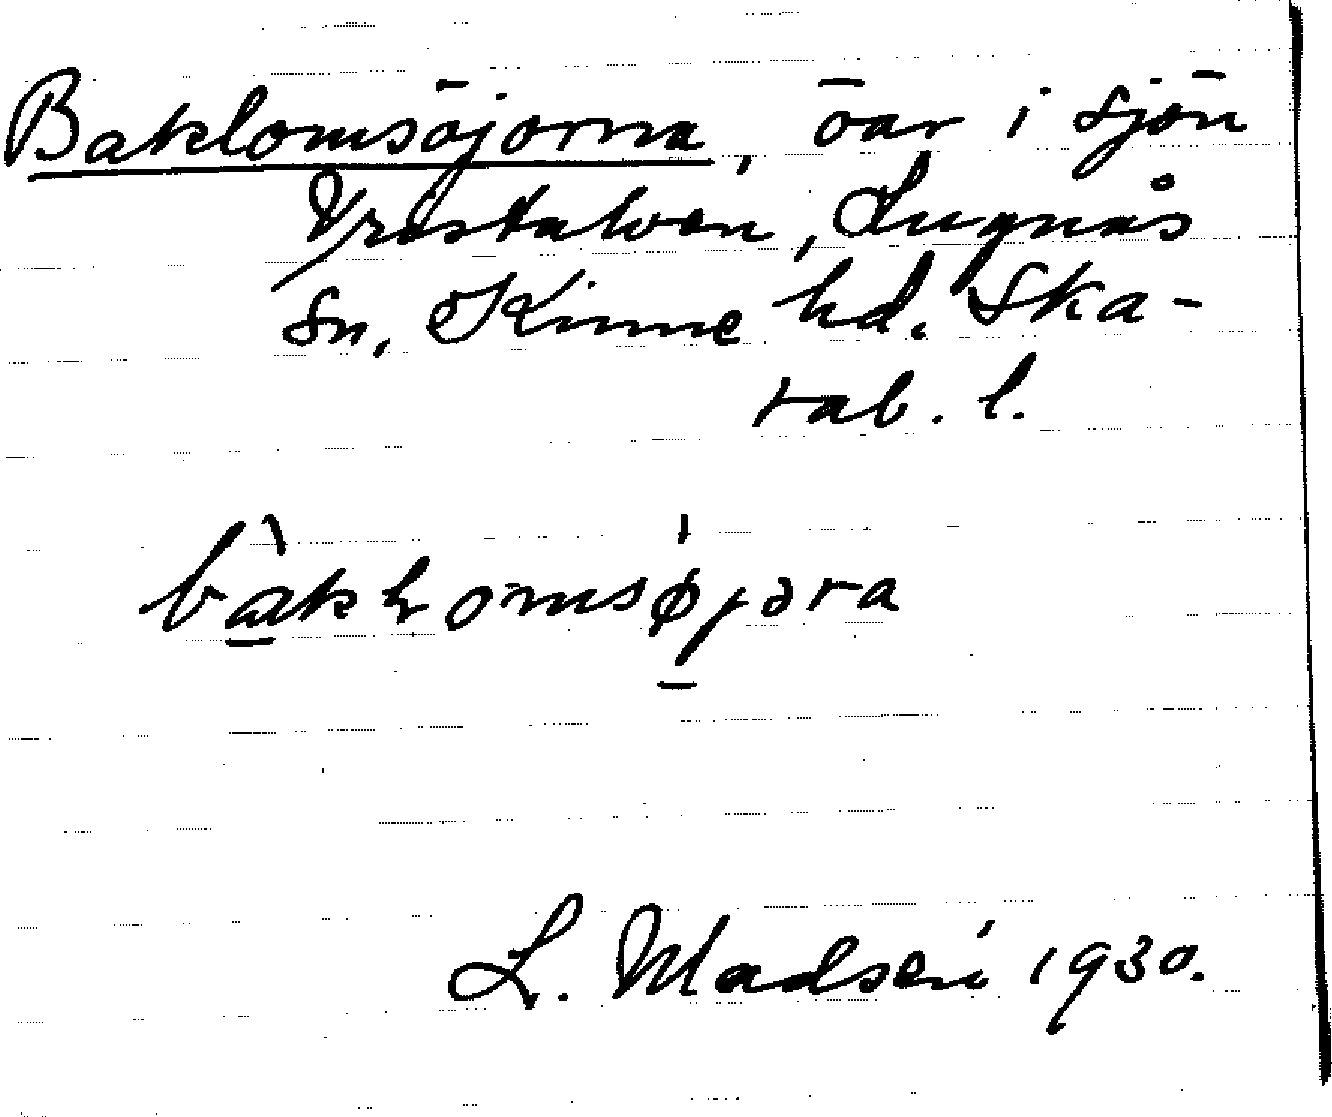 Baklomsöjorna, öar i sjön
Vristulven, Lugnås
sn, Kinne hd. Ska-
rab. l.
baklomsøjəra
L. Madsén 1930.